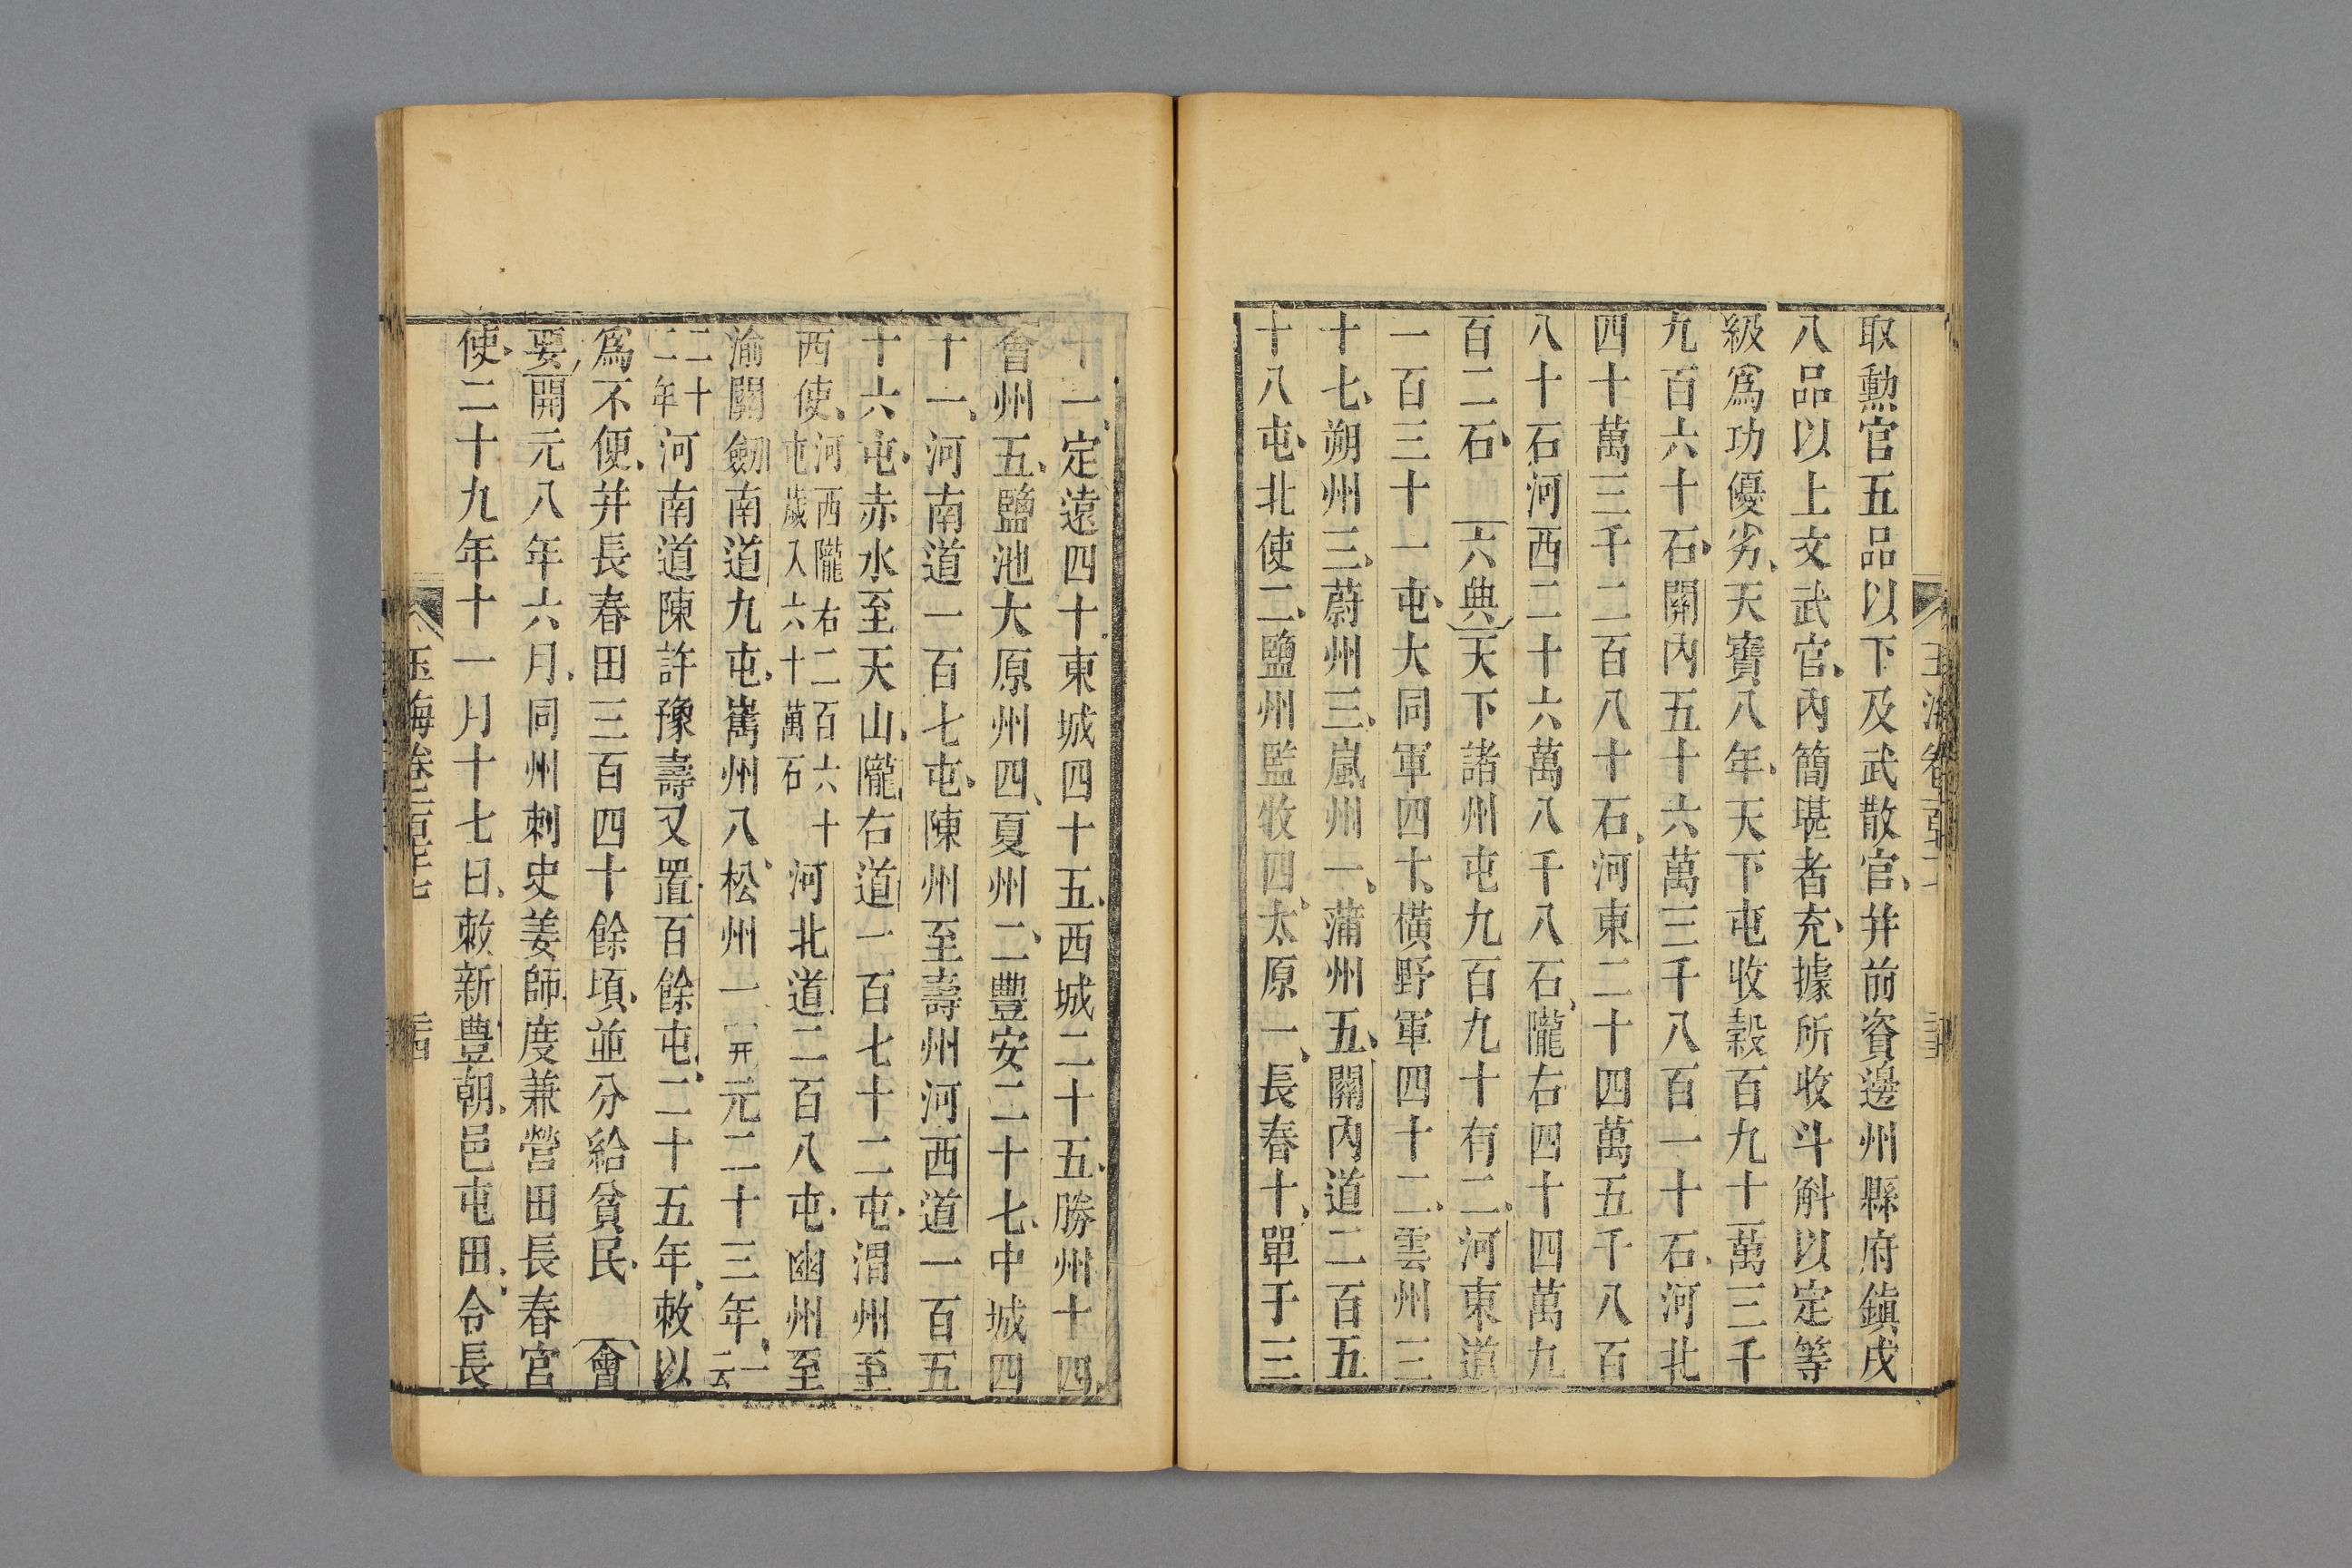 取勲官五品以下及武散官并前資邊州縣府鎮戍
八品以上文武官內簡堪者充據所收斗斛以定等
級爲功優劣天寶八年天下屯收穀百九十一萬三千
九百六十石關內五十六萬三千八百一十石河北
四十萬三千二百八十石河東二十四萬五千八百
八十石河西二十六萬八千八石隴右四十四萬九
百二石 六典天下諸州屯九百九十有二河東道
一百三十一屯大同軍四十橫野軍四十二雲州三
十七朔州三蔚州三嵐州一蒲州五關內道二百五
十八屯北使二鹽州監牧四太原一長春十單于三
十一定遠四十東城四十五西城二十五勝州十四
會州五鹽池大原州四夏州二豐安二十七中城四
十一河南道一百七屯陳州至壽州河西道一百五
十六屯赤水至天山隴右道一百七十二屯渭州至
西使河西隴右二百六十屯歲入六十萬石河北道二百八屯幽州至
渝關劒南道九屯嶲州八松州一開元二十三年一云
二十二年河南道陳許豫壽又置百餘屯二十五年敕以
爲不便并長春田三百四十餘頃並分給貧民 會
要開元八年六月同州刺史姜師度兼營田長春宮
使二十九年十一月十七日敕新豊朝邑屯田令長
玉海卷一百七十七